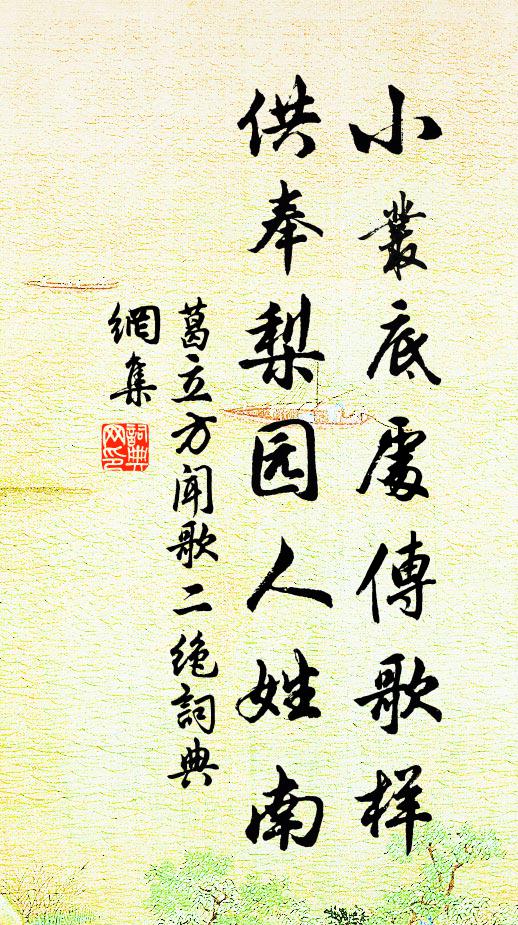 小叢底處傳歌样
供奉梨园人姓南
葛立方闻歌二绝詞典
網集
詞典
网印